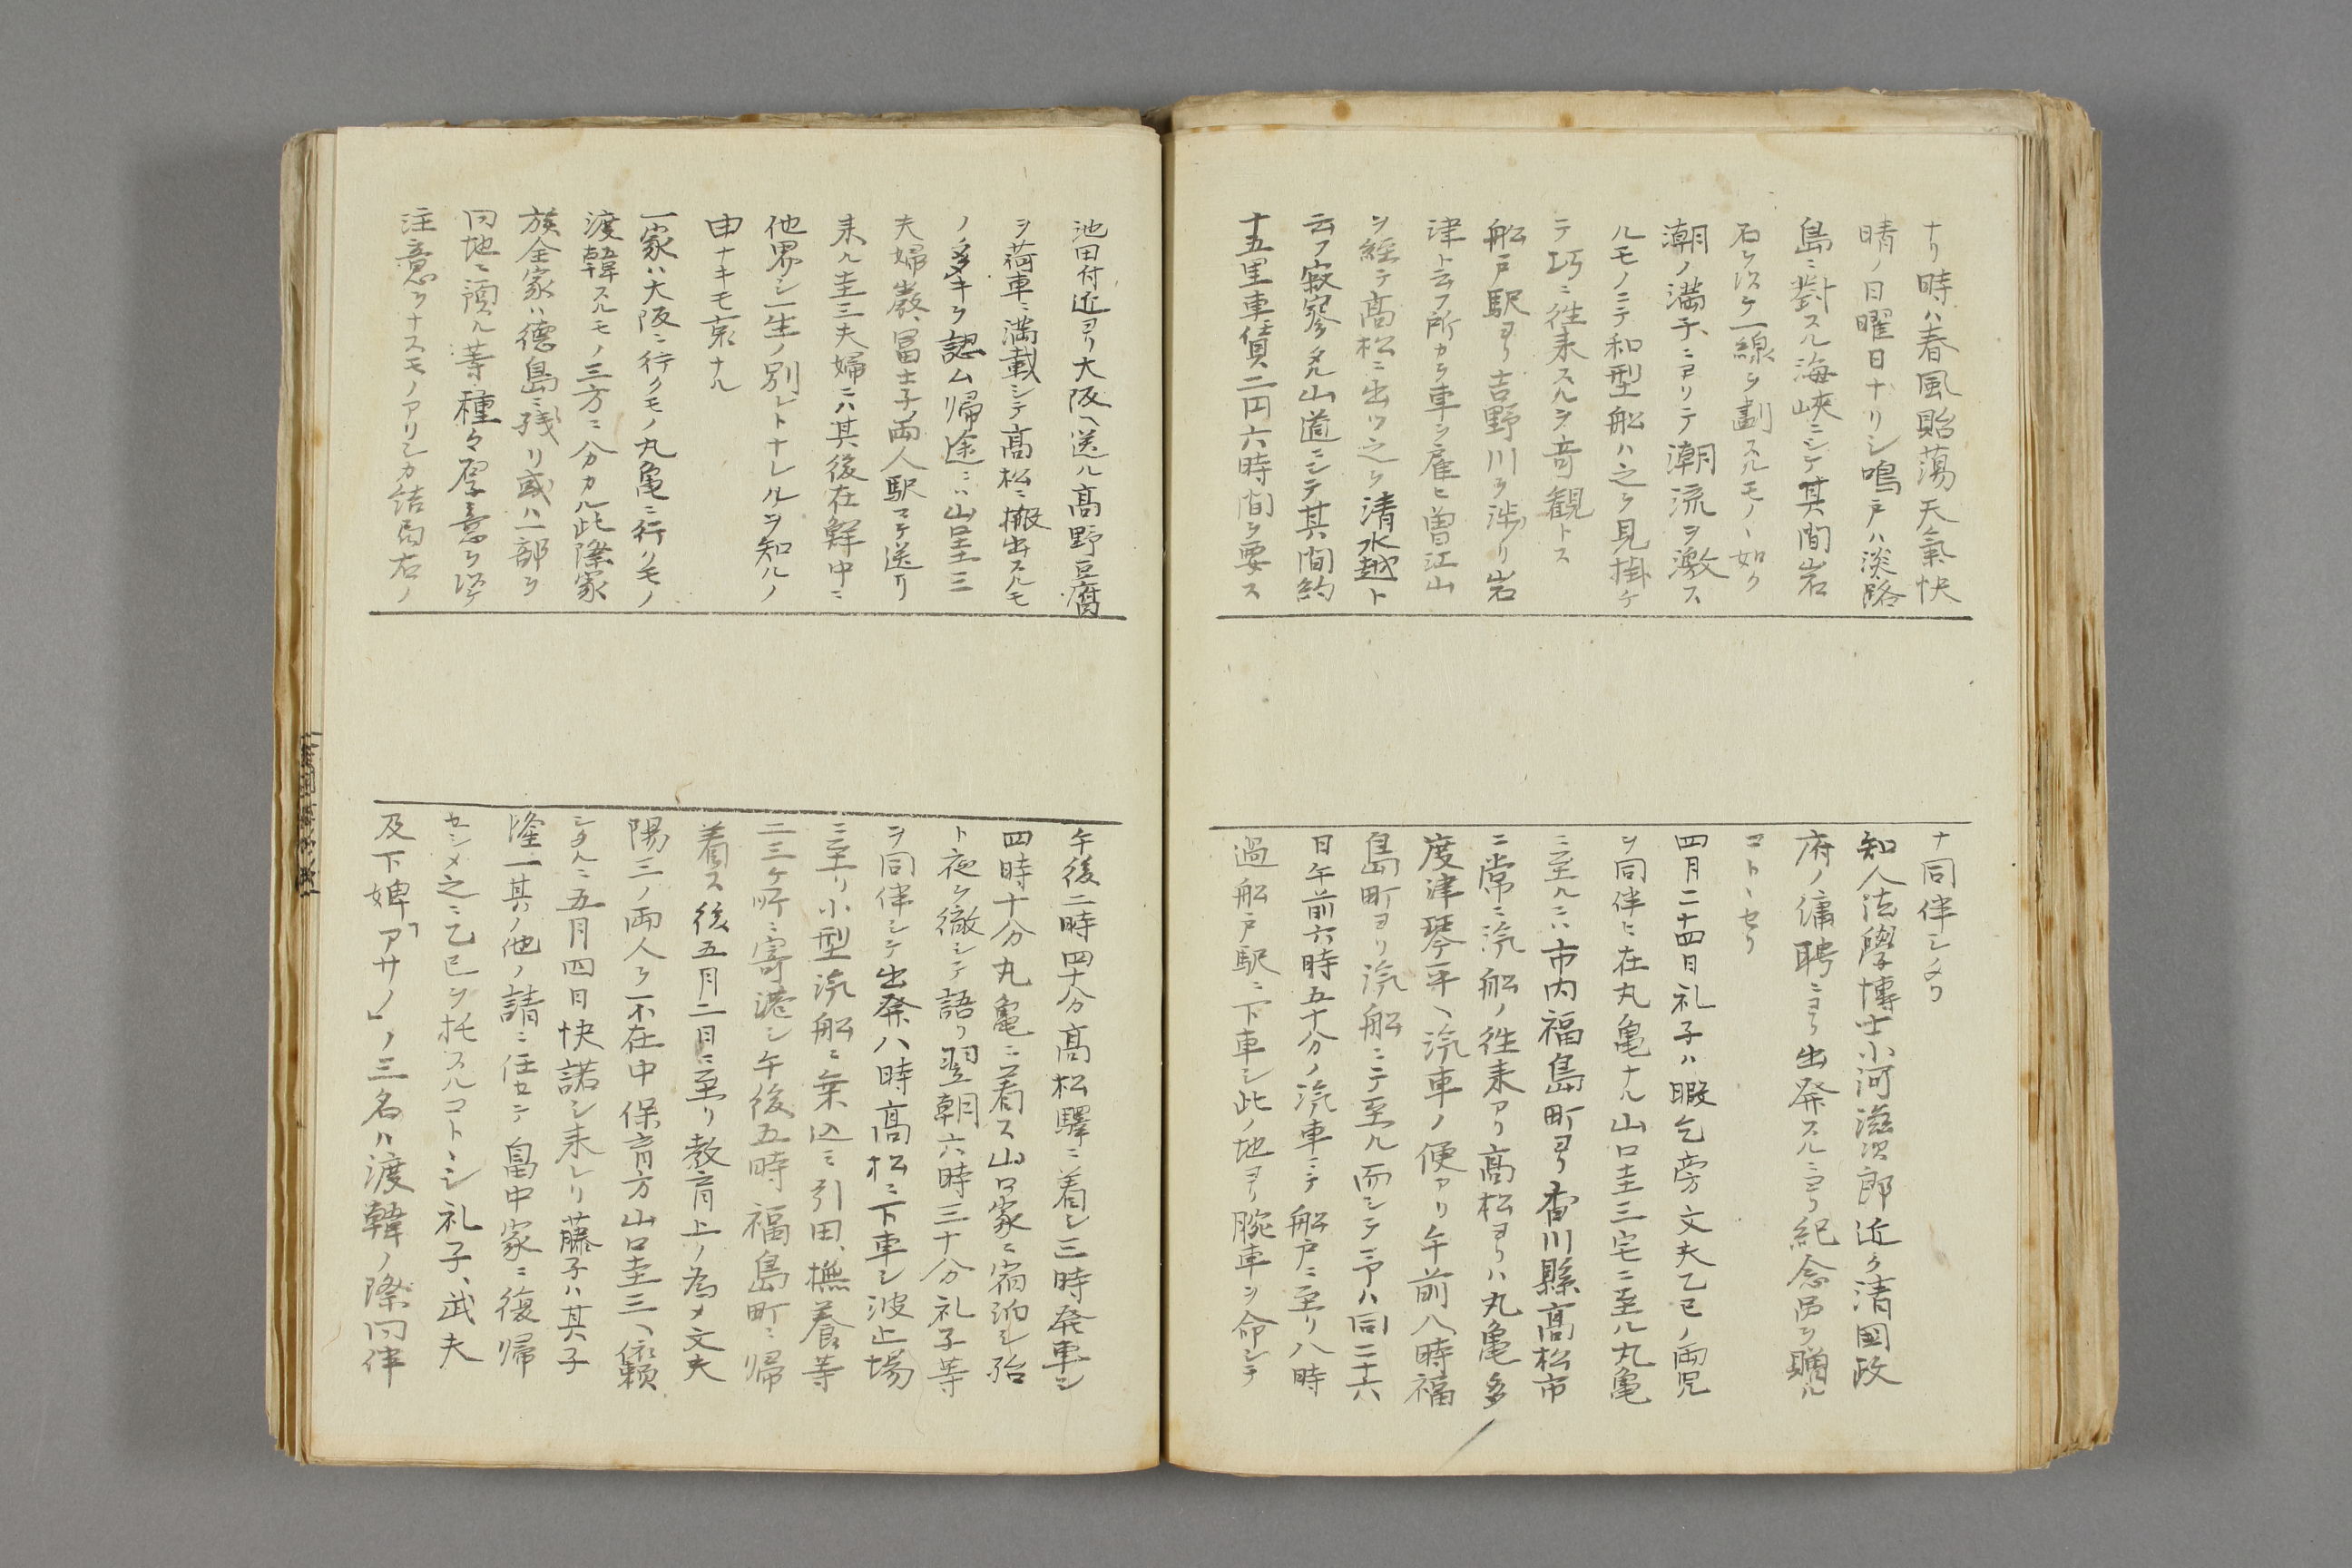 ナリ時ハ春風貽蕩天氣快
晴ノ日曜日ナリシ鳴戸ハ淡路
島ニ對スル海峽ニシテ其間岩
石ヲ以テ一線ヲ劃スルモノヽ如ク
潮ノ満干ニヨリテ潮流ヲ激ス
ルモノニテ和型船ハ之ヲ見掛ケ
テ巧ニ往来スルヲ奇観トス
船戸駅ヨリ吉野川ヲ渉リ岩
津ト云フ所カラ車ヲ雇ヒ曽江山
ヲ経テ高松ニ出ツ之ヲ清水越ト
云フ寂寥タル山道ニシテ其間約
十五里車賃二円六時間ヲ要ス
ナ同伴シメタリ
知人法學博士小河滋次郎近ク清國政
府ノ傭聘ニヨリ出発スルニヨリ紀念品ヲ贈ル
コトヽセリ
四月二十四日礼子ハ暇乞旁文夫乙已ノ両児
ヲ同伴ヒ在丸亀ナル山口圭三宅ニ至ル丸亀
ニ至ルニハ市内福島町ヨリ香川縣高松市
ニ常ニ汽船ノ往来アリ高松ヨリハ丸亀多
度津琴平ヘ汽車ノ便アリ午前八時福
島町ヨリ汽船ニテ至ル而シテ予ハ同二十六
日午前六時五十分ノ汽車ニテ船戸ニ至リ八時
過船戸駅ニ下車シ此ノ地ヨリ腕車ヲ命シテ
池田付近ヨリ大阪ヘ送ル高野豆腐
ヲ荷車ニ満載シテ高松ニ搬出スルモ
ノ多キヲ認ム帰途ニハ山口圭三
夫婦巌、冨士子両人駅マテ送リ
来ル圭三夫婦ニハ其後在鮮中ニ
他界シ一生ノ別レトナレルヲ知ルノ
由ナキモ哀ナル
一家ハ大阪ニ行クモノ丸亀ニ行クモノ
渡韓スルモノ三方ニ分カル此際家
族全家ハ徳島ニ残リ或ハ一部ヲ
同地ニ預ル等種々厚意ヲ以テ
注意ヲナスモノアリシカ結局右ノ
午後二時四十分高松驛ニ着シ三時発車シ
四時十分丸亀ニ着ス山口家ニ宿泊シ殆
ト夜ヲ徹シテ語リ翌朝六時三十分礼子等
ヲ同伴シテ出発八時高松ニ下車シ波止場
ニ至リ小型汽船ニ乗込ミ引田、撫養等
二三ヶ町ニ寄港シ午後五時福島町ニ帰
着ス後五月二日ニ至リ教育上ノ為メ文夫
陽三ノ両人ヲ不在中保育方山口圭三ヘ依頼
シタルニ五月四日快諾シ来レリ藤子ハ其子
隆一其ノ他ノ請ニ任セテ畠中家ニ復帰
セシメ之ニ乙已ヲ托スルコトヽシ礼子、武夫
及下婢「アサノ」ノ三名ハ渡韓ノ際同伴